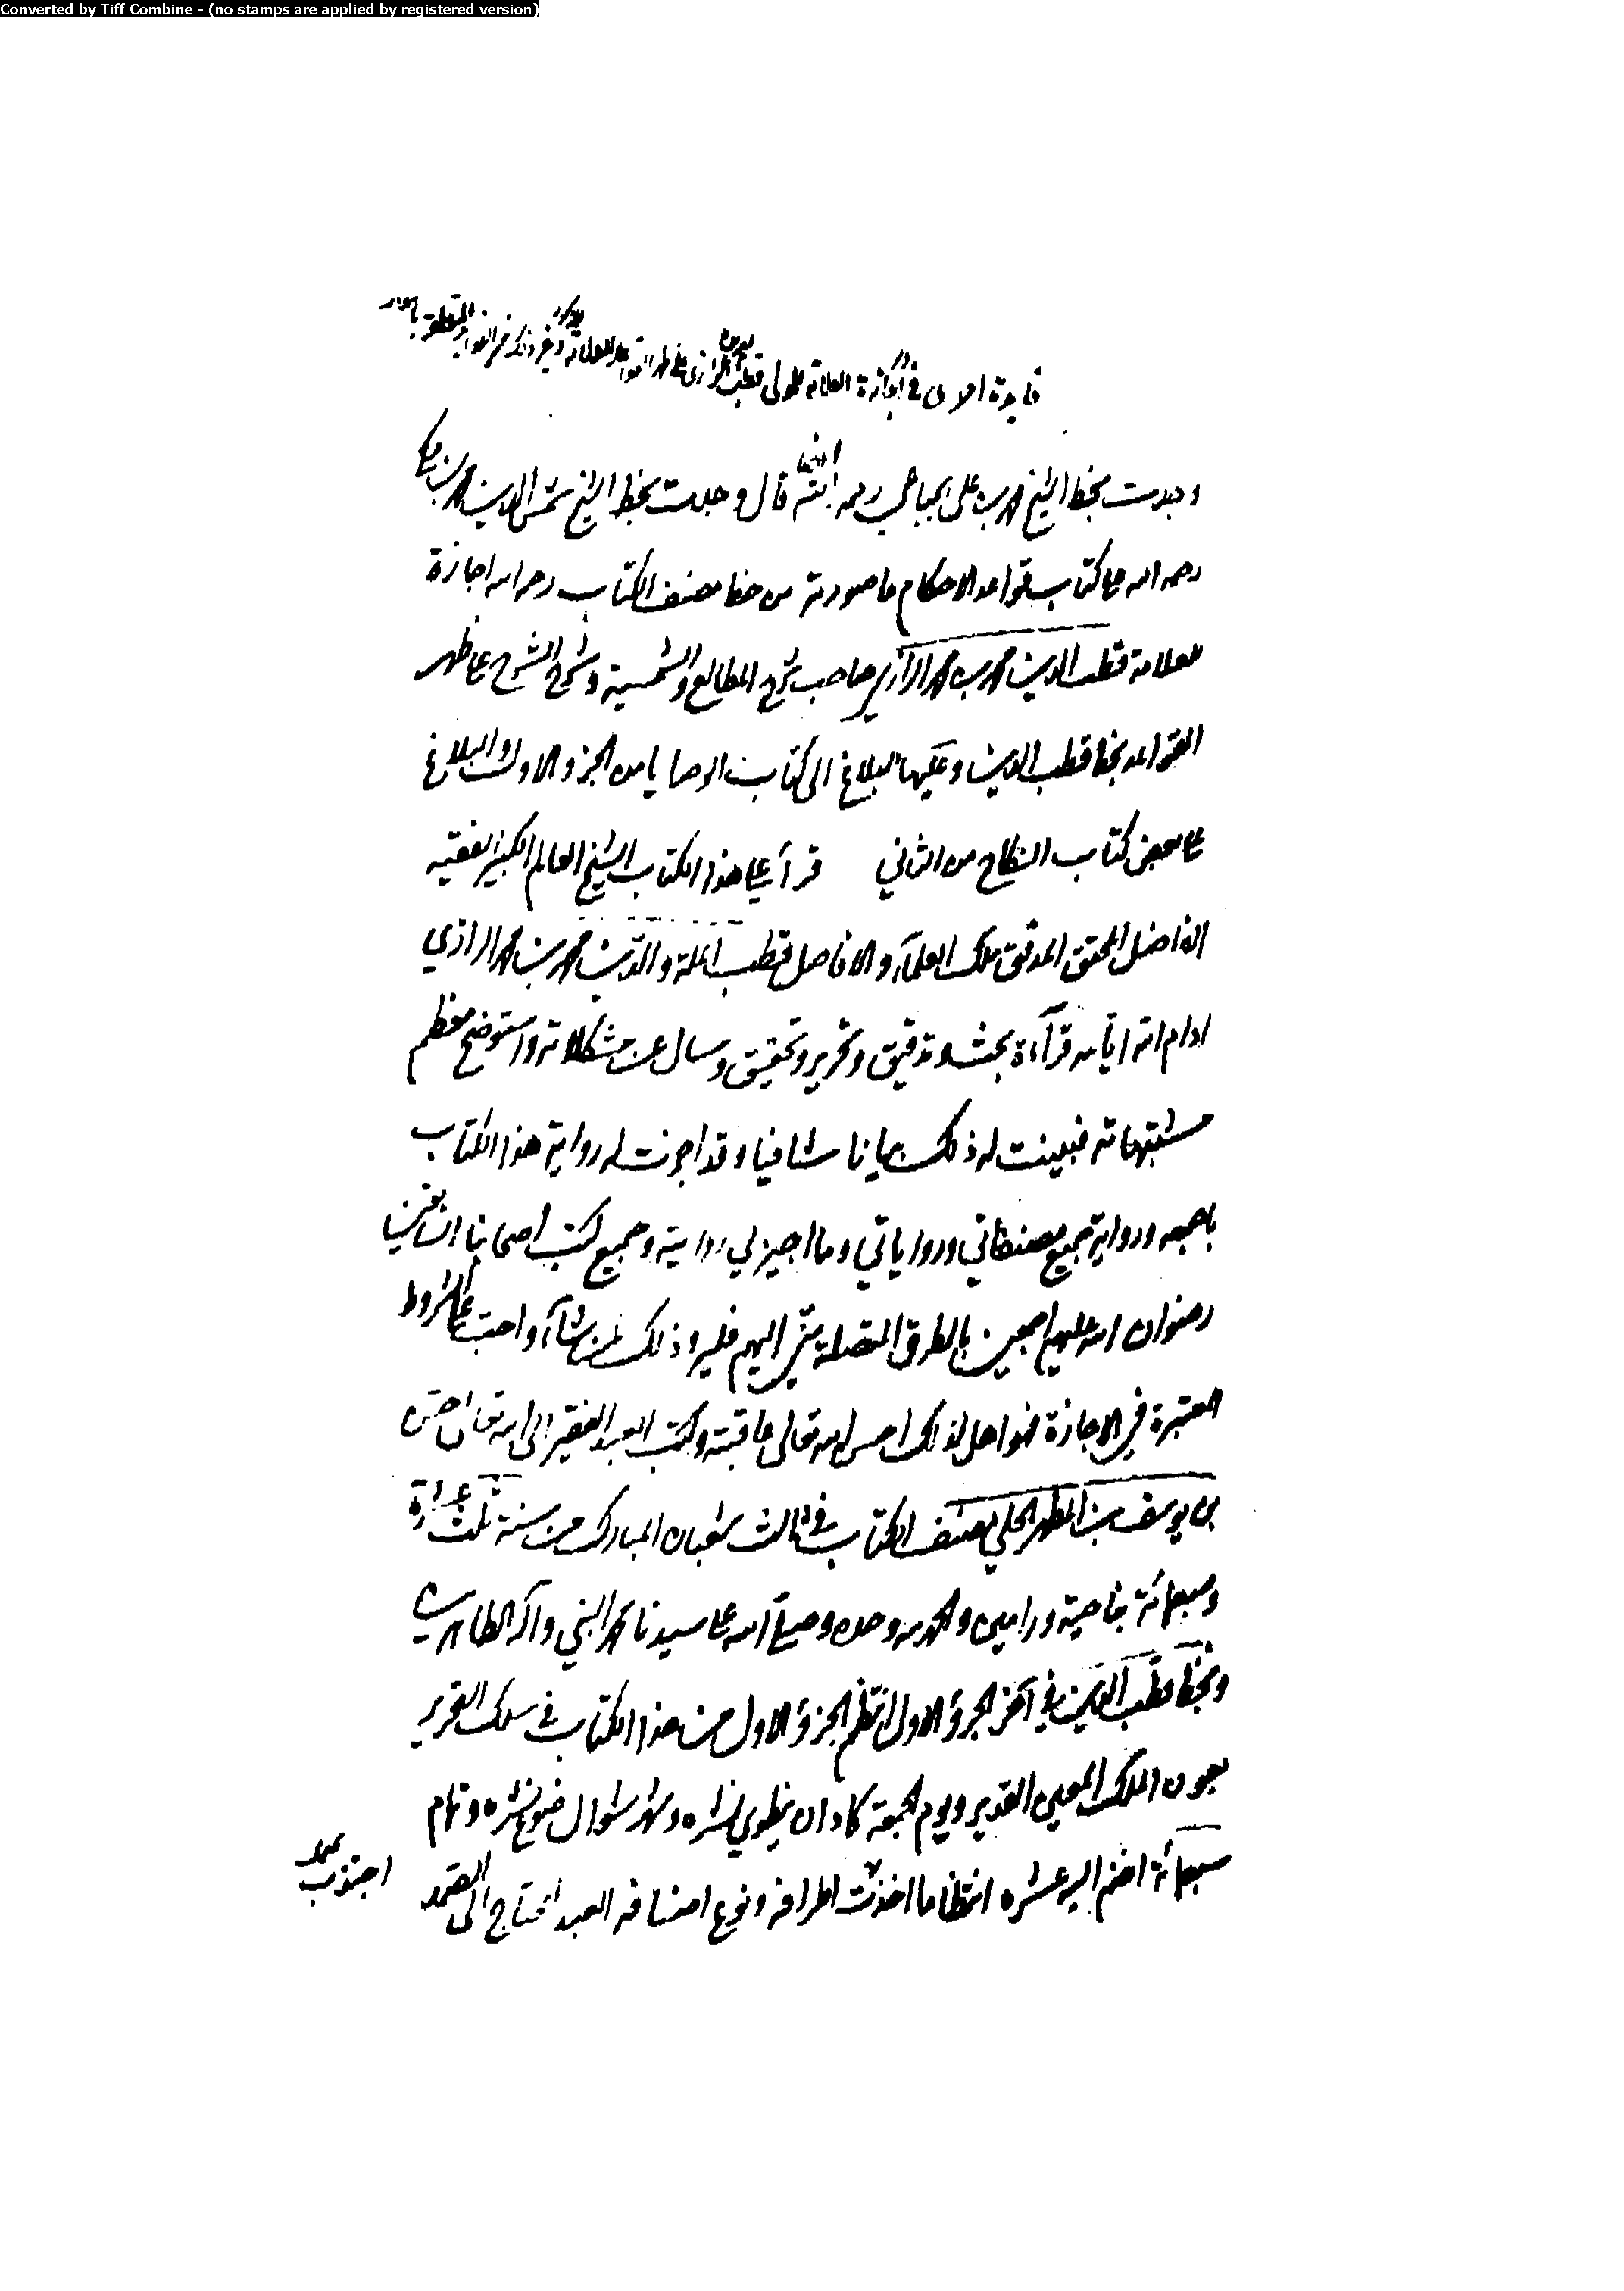 Converted by Tiff Combine - (no stamps are applied by registered version)
فايدة اخرى في اجازة العلامة للمولى قطب الدين الرازي على ظهر القواعد للعلامة وغير ذلك من الفوايد المتعلقة
وجدت بخط الشيخ محمد بن علي الجباعي رحمه الله قال وجدت بخط الشيخ شمس الدين محمد بن مكي
رحمه الله على كتاب قواعد الاحكام ما صورته من خط مصنف الكتاب رحمه الله اجازة
للعلامة قطب الدين محمد بن محمد الرازي صاحب شرح المطالع والشمسية وشرح الشرح على ظهر
القواعد بخط قطب الدين وعليها البلاغ الى كتاب الوصايا من الجزو الاول والبلاغ
على بعض كتاب النكاح من الثاني قرأ علي هذا الكتاب الشيخ العالم الكبير الفقيه
الفاضل المحقق المدقق ملك العلمآء والافاضل قطب الملة والدين محمد بن محمد الرازي
ادام الله ايامه قرآءة بحث وتدقيق وتحرير وتحقيق وسال عن مشكلاته واستوضح معظم
مشتبهاته فبينت له ذلك بيانا شافيا وقد اجزت له رواية هذا الكتاب
باجمعه ورواية جميع مصنفاتي ورواياتي وما اجيز لي روايته وجميع كتب اصحابنا السابقين
رضوان الله عليهم اجمعين بالطرق المتصلة مني اليهم فليرو ذلك لمن شآء واحب على الشروط
المعتبرة في الاجازة فهو اهل لذلك احسن الله تعالى عاقبته وكتب العبد الفقير الى الله تعالى حسن
بن يوسف بن المطهر الحلي مصنف الكتاب في ثالث شعبان المبارك من سنة ثلث عشرة
وسبعمائة بناحية ورامين والحمد لله وحده وصلى الله على سيدنا محمد النبي وآله الطاهرين
وبخط قطب الدين في آخر الجزؤ الاول انتظم الجزؤ الاول من هذا الكتاب في سلك التحرير
بعون الملك المعين القدير ويوم الجمعة كاد ان ينطوي نشره وشهر شوال ضوع نشره وتمام
سبعمائة انضم اليه عشره انتظاما اخذت اطرافه ونوع اصنافه العبد المحتاج الى الصمد
محمد